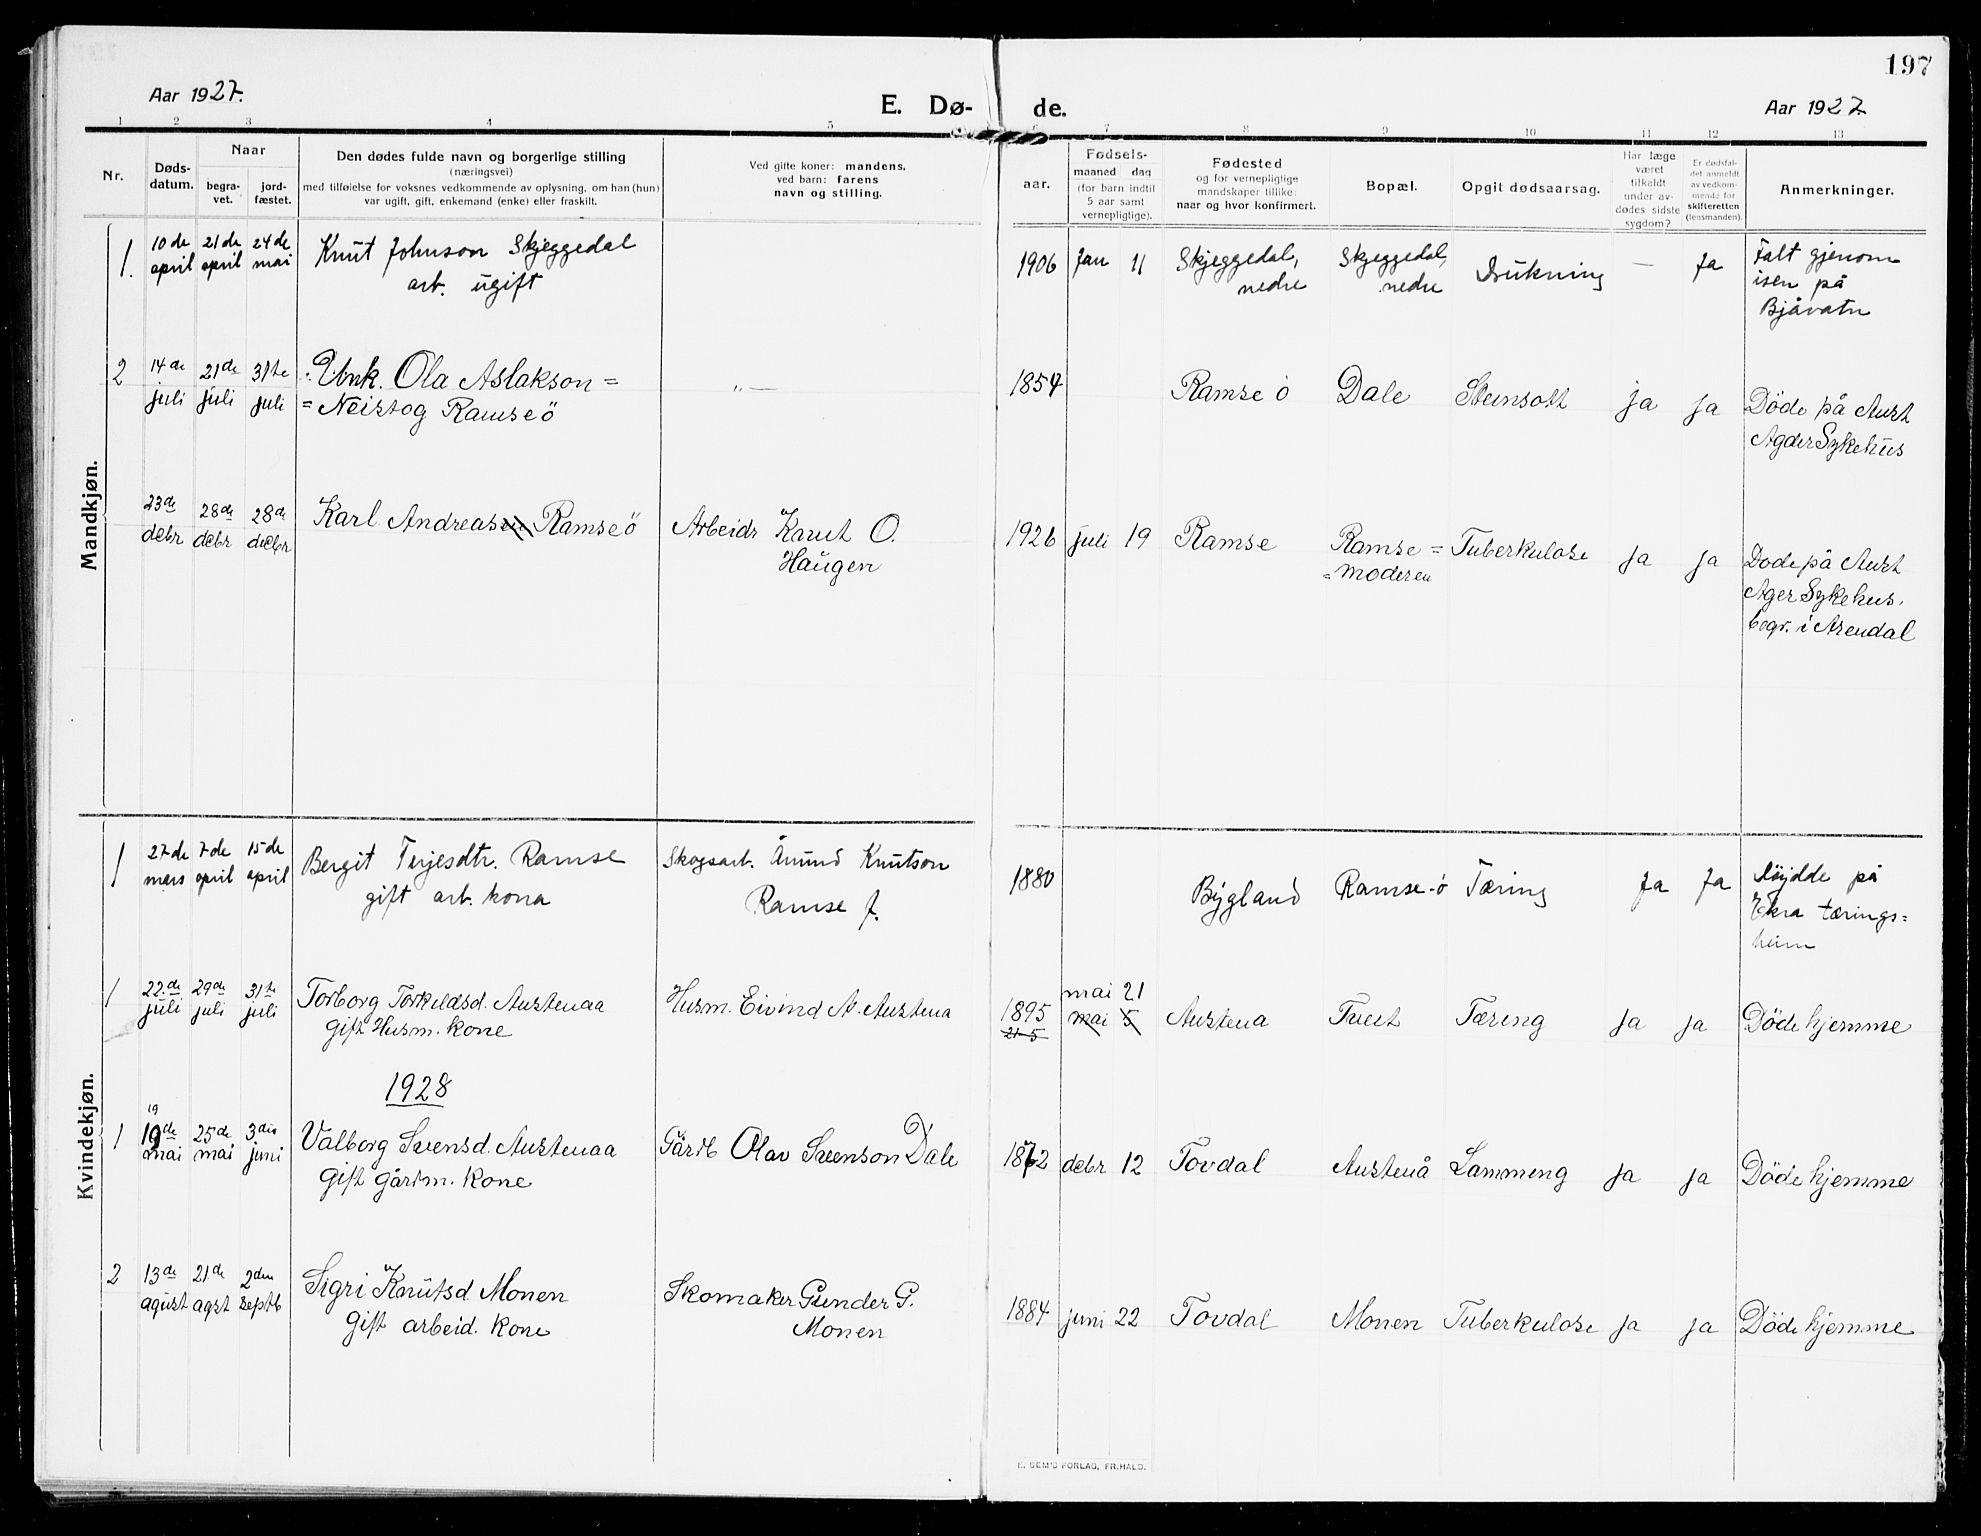 197
Aar 1927.
E. Dø-
de.
Aar 1927.
1 2 3 4 5 6 7 8 9 10 11 12 13
Nr.
Døds-
datum.
Naar
begra-
vet.
jord-
fæstet.
Den dødes fulde navn og borgerlige stilling
(næringsvei)
med tilføielse for voksnes vedkommende av oplysning, om han (hun)
var ugift, gift, enkemand (enke) eller fraskilt.
Ved gifte koner: mandens,
ved barn: farens
navn og stilling.
aar.
Fødsels-
maaned dag
(for barn indtil
5 aar samt
vernepligtige).
Fødested
og for vernepligtige
mandskaper tillike:
naar og hvor konfirmert.
Bopæl.
Opgit dødsaarsag.
Har læge
været
tilkaldt
under av-
dødes sidste
sygdom?
Er dødsfal-
det anmeldt
av vedkom-
mende for
skifteretten
(lensmanden).
Anmerkninger.
Mandkjøn.
1. 10de april 21de april 24de mai
Knut Johnson Skjeggedal
arb. ugift
1906 Jan 11
Skjeggedal,
nedre
Skjeggedal,
nedre
Drukning — Ja
Falt gjenom
isen på
Bjåvatn
2 14de juli 21de juli 31te juli
Enk. Ola Aslakson =
= Neistog Ramseö
„ —
1854 Ramse ö Dale Steinsott ja ja
Döde på Aust
Agder Sykehus
23de debr 28de debr 28de debr
Karl Andreassen Ramseö
Arbeidr Knut O.
Haugen
1926 juli 19 Ramse
Ramse =
= moderen
Tuberkulose ja ja
Döde på Aust
Ager Sykehus.
begr. i Arendal
Kvindekjøn.
1 27de mars 7de april 15de april
Bergit Terjesdtr. Ramse
gift arb. kona
Skogsarb. Ånund Knutson
Ramse f.
1880 Bygland Ramse-ö Tæring Ja Ja
Döydde på
Ekra tærings=
heim
1 22de juli 29de juli 31te juli
Torborg Torkeldsd. Austenaa
gift Husm. kone
Husm. Eivind A. Austena
1895
21-5
mai 21
mai 5
Austena Tveit Tæring ja ja Döde hjemme
1928
19
1 19de mai 25de mai 3die juni
Valborg Svensd. Austenaa
Gift gårdm. kone
Gårdb Olav Svenson Dale
1872 debr 12 Tovdal Austenå Lammeng ja ja Döde hjemme
2 13de agust 21de agst 2den septb
Sigri Knutsd Monen
Gift arbeid. kone
Skomaker Gunder G.
Monen
1884 juni 22 Tovdal Monen Tuberkulose ja ja Döde hjemme
E. SEM'S FORLAG, FR.HALD.